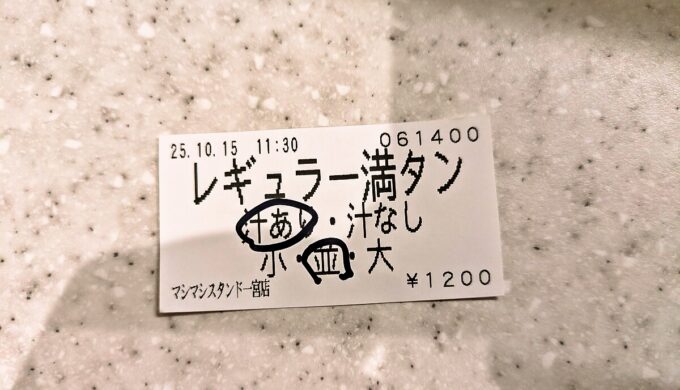 25.10.15 11:30 061400
レギュラー満タン
汁あり・汁なし
小・並・大
マシマシスタンド一宮店 ¥1200